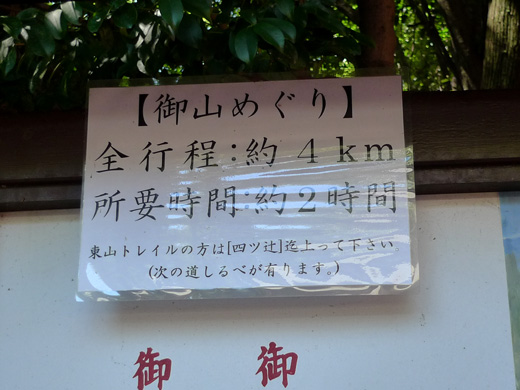 【御山めぐり】
全行程:約4km
所要時間:約2時間
東山トレイルの方は[四ツ辻]迄上って下さい
(次の道しるべが有ります。)
御 御